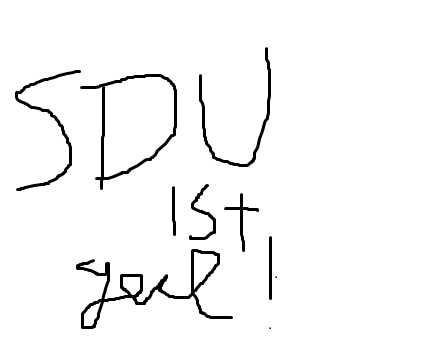 SDU
ist
geil!